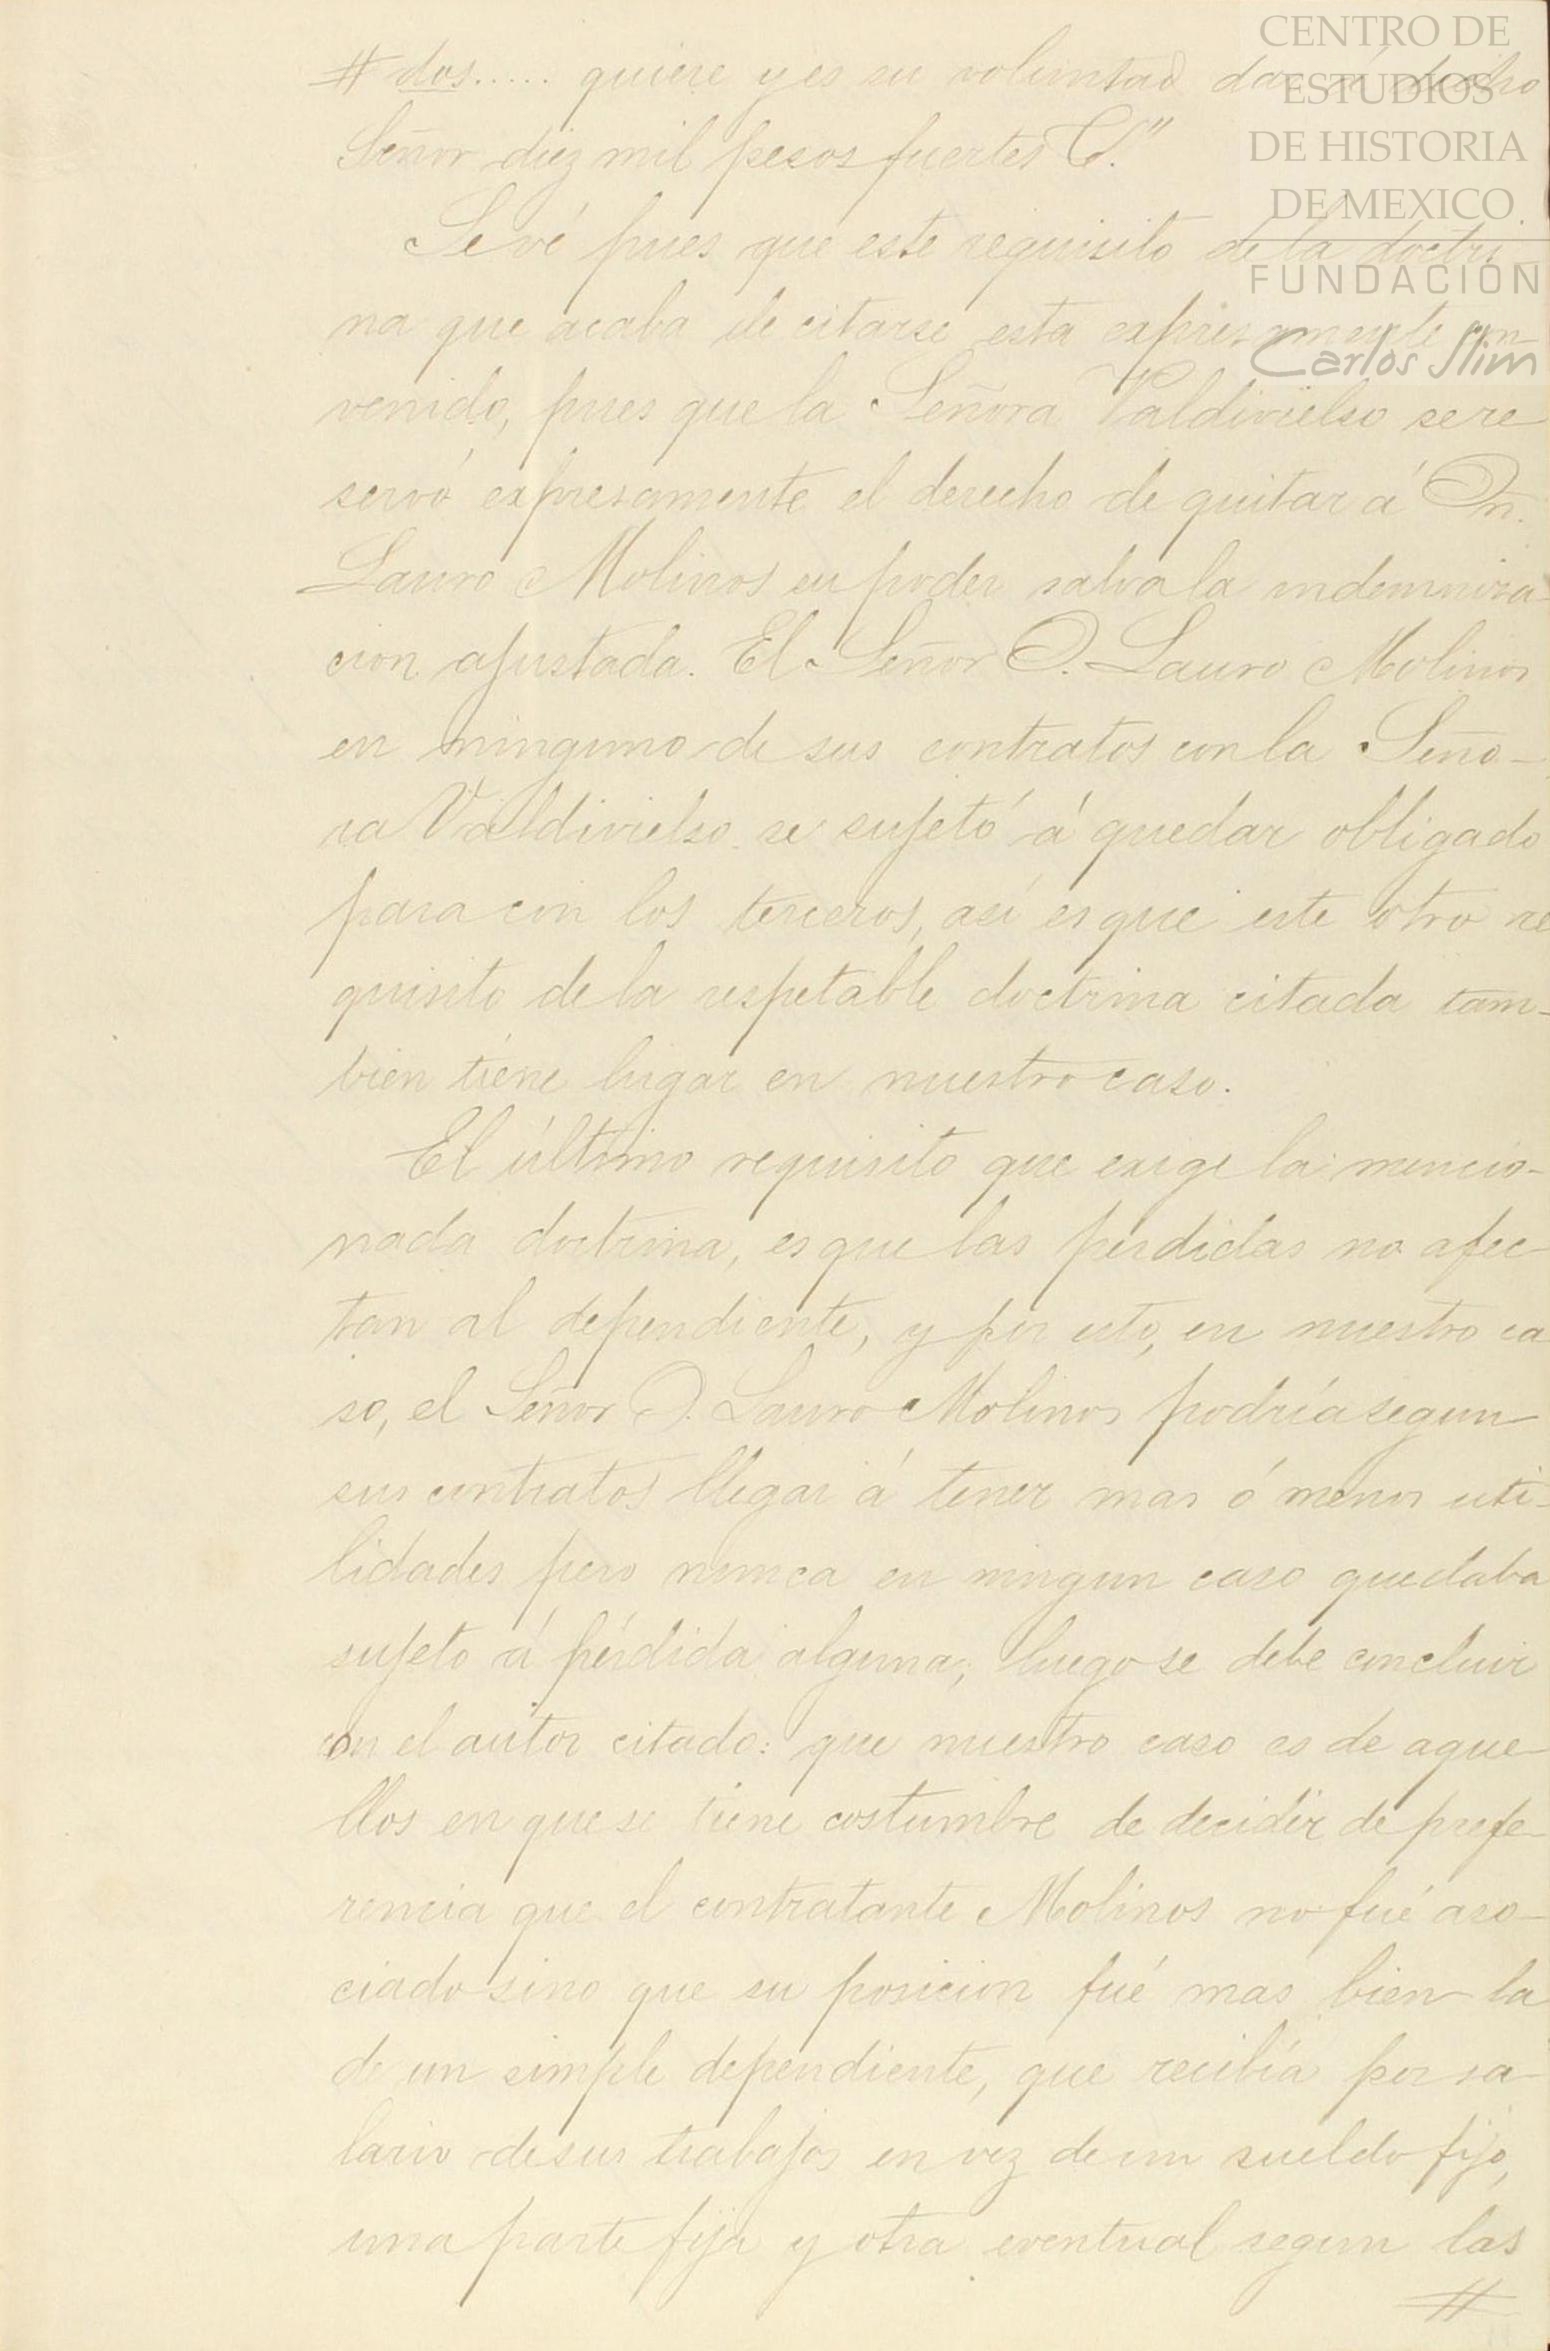 # dos..... quiere y es su voluntad dar á dicho
Señor diez mil pesos fuertes &."
Se vé pues que este requisito de la doctri-
na que acaba de citarse esta expresamente con-
venido, pues que la Señora Valdivielso se re
servó expresamente el derecho de quitar á Dn.
Lauro Molinos su poder salva la indemniza-
cion ajustada. El Señor D. Lauro Molinos
en ninguno de sus contratos con la Seño-
ra Valdivielso se sujetó á quedar obligado
para con los terceros, asi es que este otro re
quisito de la respetable doctrina citada tam-
bien tiene lugar en nuestro caso.
El último requisito que exige la mencio-
nada doctrina, es que las perdidas no afec-
tan al dependiente, y por esto, en nuestro ca
so, el Señor D. Lauro Molinos podría segun
sus contratos llegar á tener mas ó menos uti-
lidades pero nunca en ningun caso quedaba
sujeto á pérdida alguna; luego se debe concluir
con el autor citado: que nuestro caso es de aque-
llos en que se tiene costumbre de decidir de prefe-
rencia que el contratante Molinos no fué aso-
ciado sino que su posicion fué mas bien la
de un simple dependiente, que recibía por sa-
lario de sus trabajos en vez de un sueldo fijo,
una parte fija y otra eventual segun las
#
CENTRO DE
ESTUDIOS
DE HISTORIA
DE MEXICO
FUNDACIÓN
Carlos Slim